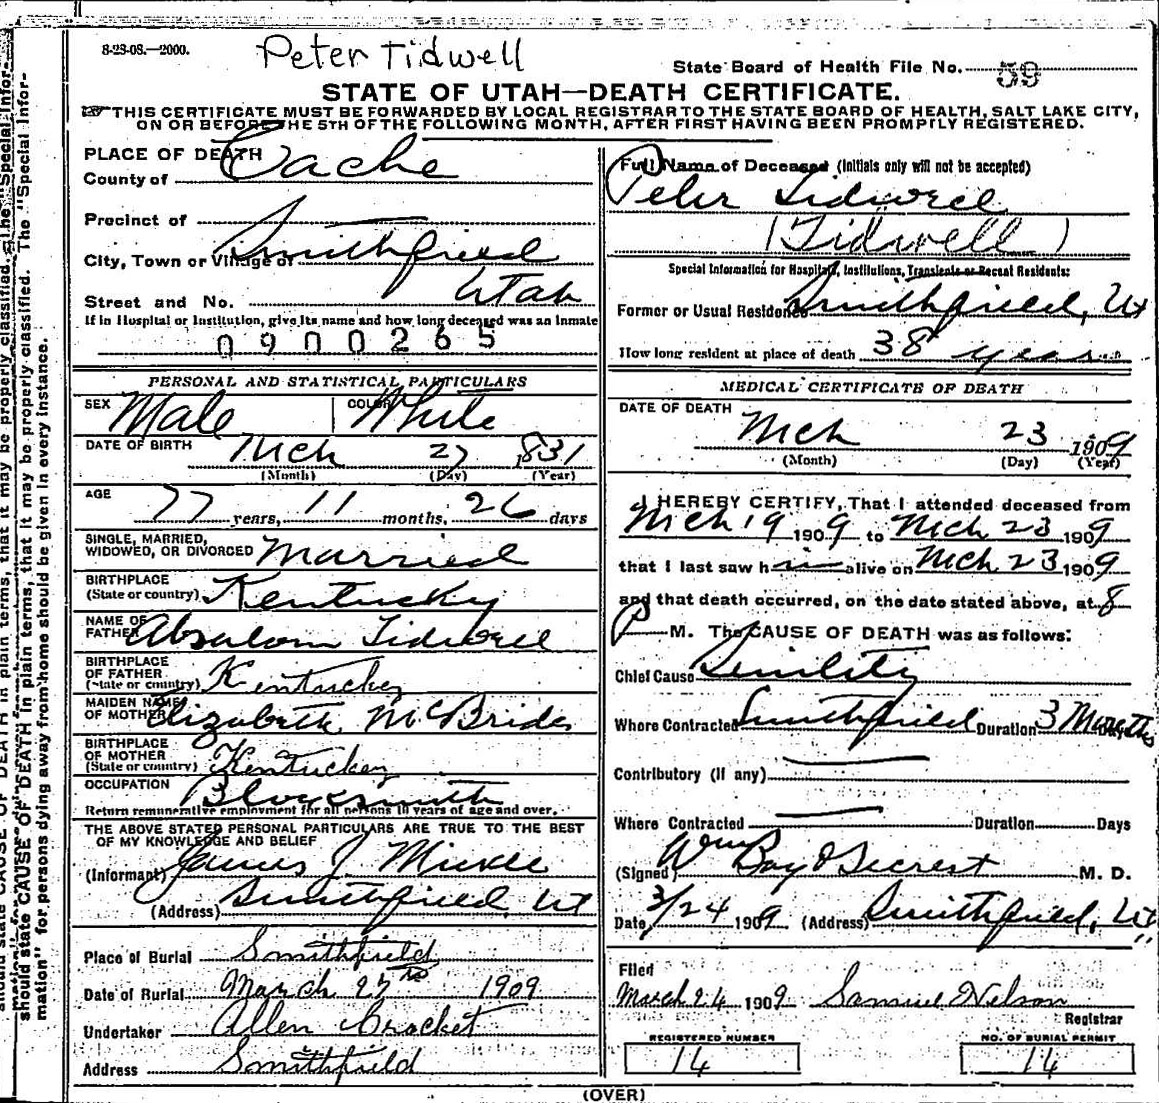 8-23-08.—2000.
Peter Tidwell
State Board of Health File No. 59
STATE OF UTAH—DEATH CERTIFICATE.
THIS CERTIFICATE MUST BE FORWARDED BY LOCAL REGISTRAR TO THE STATE BOARD OF HEALTH, SALT LAKE CITY,
ON OR BEFORE THE 5TH OF THE FOLLOWING MONTH, AFTER FIRST HAVING BEEN PROMPTLY REGISTERED.
PLACE OF DEATH
County of Cache
Precinct of
City, Town or Village of Smithfield
Utah
Street and No.
If in Hospital or Institution, give its name and how long deceased was an inmate
0900265
PERSONAL AND STATISTICAL PARTICULARS
SEX Male COLOR White
DATE OF BIRTH Mch 27 1831
(Month) (Day) (Year)
AGE 77 years, 11 months, 26 days
SINGLE, MARRIED,
WIDOWED, OR DIVORCED Married
BIRTHPLACE
(State or country) Kentucky
NAME OF
FATHER Absalom Tidwell
BIRTHPLACE
OF FATHER
(State or country) Kentucky
MAIDEN NAME
OF MOTHER Elizabeth McBrides
BIRTHPLACE
OF MOTHER
(State or country) Kentucky
OCCUPATION Blacksmith
Return remunerative employment for all persons 10 years of age and over.
THE ABOVE STATED PERSONAL PARTICULARS ARE TRUE TO THE BEST
OF MY KNOWLEDGE AND BELIEF
(Informant) James J.
(Address) Smithfield, Ut
Place of Burial Smithfield
Date of Burial March 25th 1909
Undertaker Allen Crocket
Address Smithfield
Full Name of Deceased (Initials only will not be accepted)
Peter Tidwell
(Tidwell)
Special Information for Hospitals, Institutions, Transients or Recent Residents:
Former or Usual Residence Smithfield, Ut
How long resident at place of death 38 years
MEDICAL CERTIFICATE OF DEATH
DATE OF DEATH
Mch 23 1909
(Month) (Day) (Year)
I HEREBY CERTIFY, That I attended deceased from
Mch 19 1909 to Mch 23 1909
that I last saw him alive on Mch 23 1909
and that death occurred, on the date stated above, at 8
P M. The CAUSE OF DEATH was as follows:
Chief Cause Senility
Where Contracted Smithfield Duration 3 Months
Contributory (if any)
Where Contracted Duration Days
(Signed) Wm M. D.
Date 3/24 1909 (Address) Smithfield, Ut
Filed
March 24 1909 Samuel Nelson
Registrar
REGISTERED NUMBER
14
NO. OF BURIAL PERMIT
14
(OVER)
should state CAUSE OF DEATH in plain terms, that it may be properly classified. The "Special Infor-
mation" for persons dying away from home should be given in every instance.